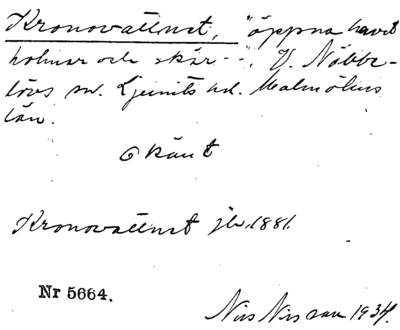 Kronovattnet, "öppna havet
holmar och skär --". V. Nöbbe-
lövs sn. Ljunits hd. Malmöhus
län.
Okänt
Kronovattnet jb. 1881.
Nr 5664.
Nils Nilsson 1934.